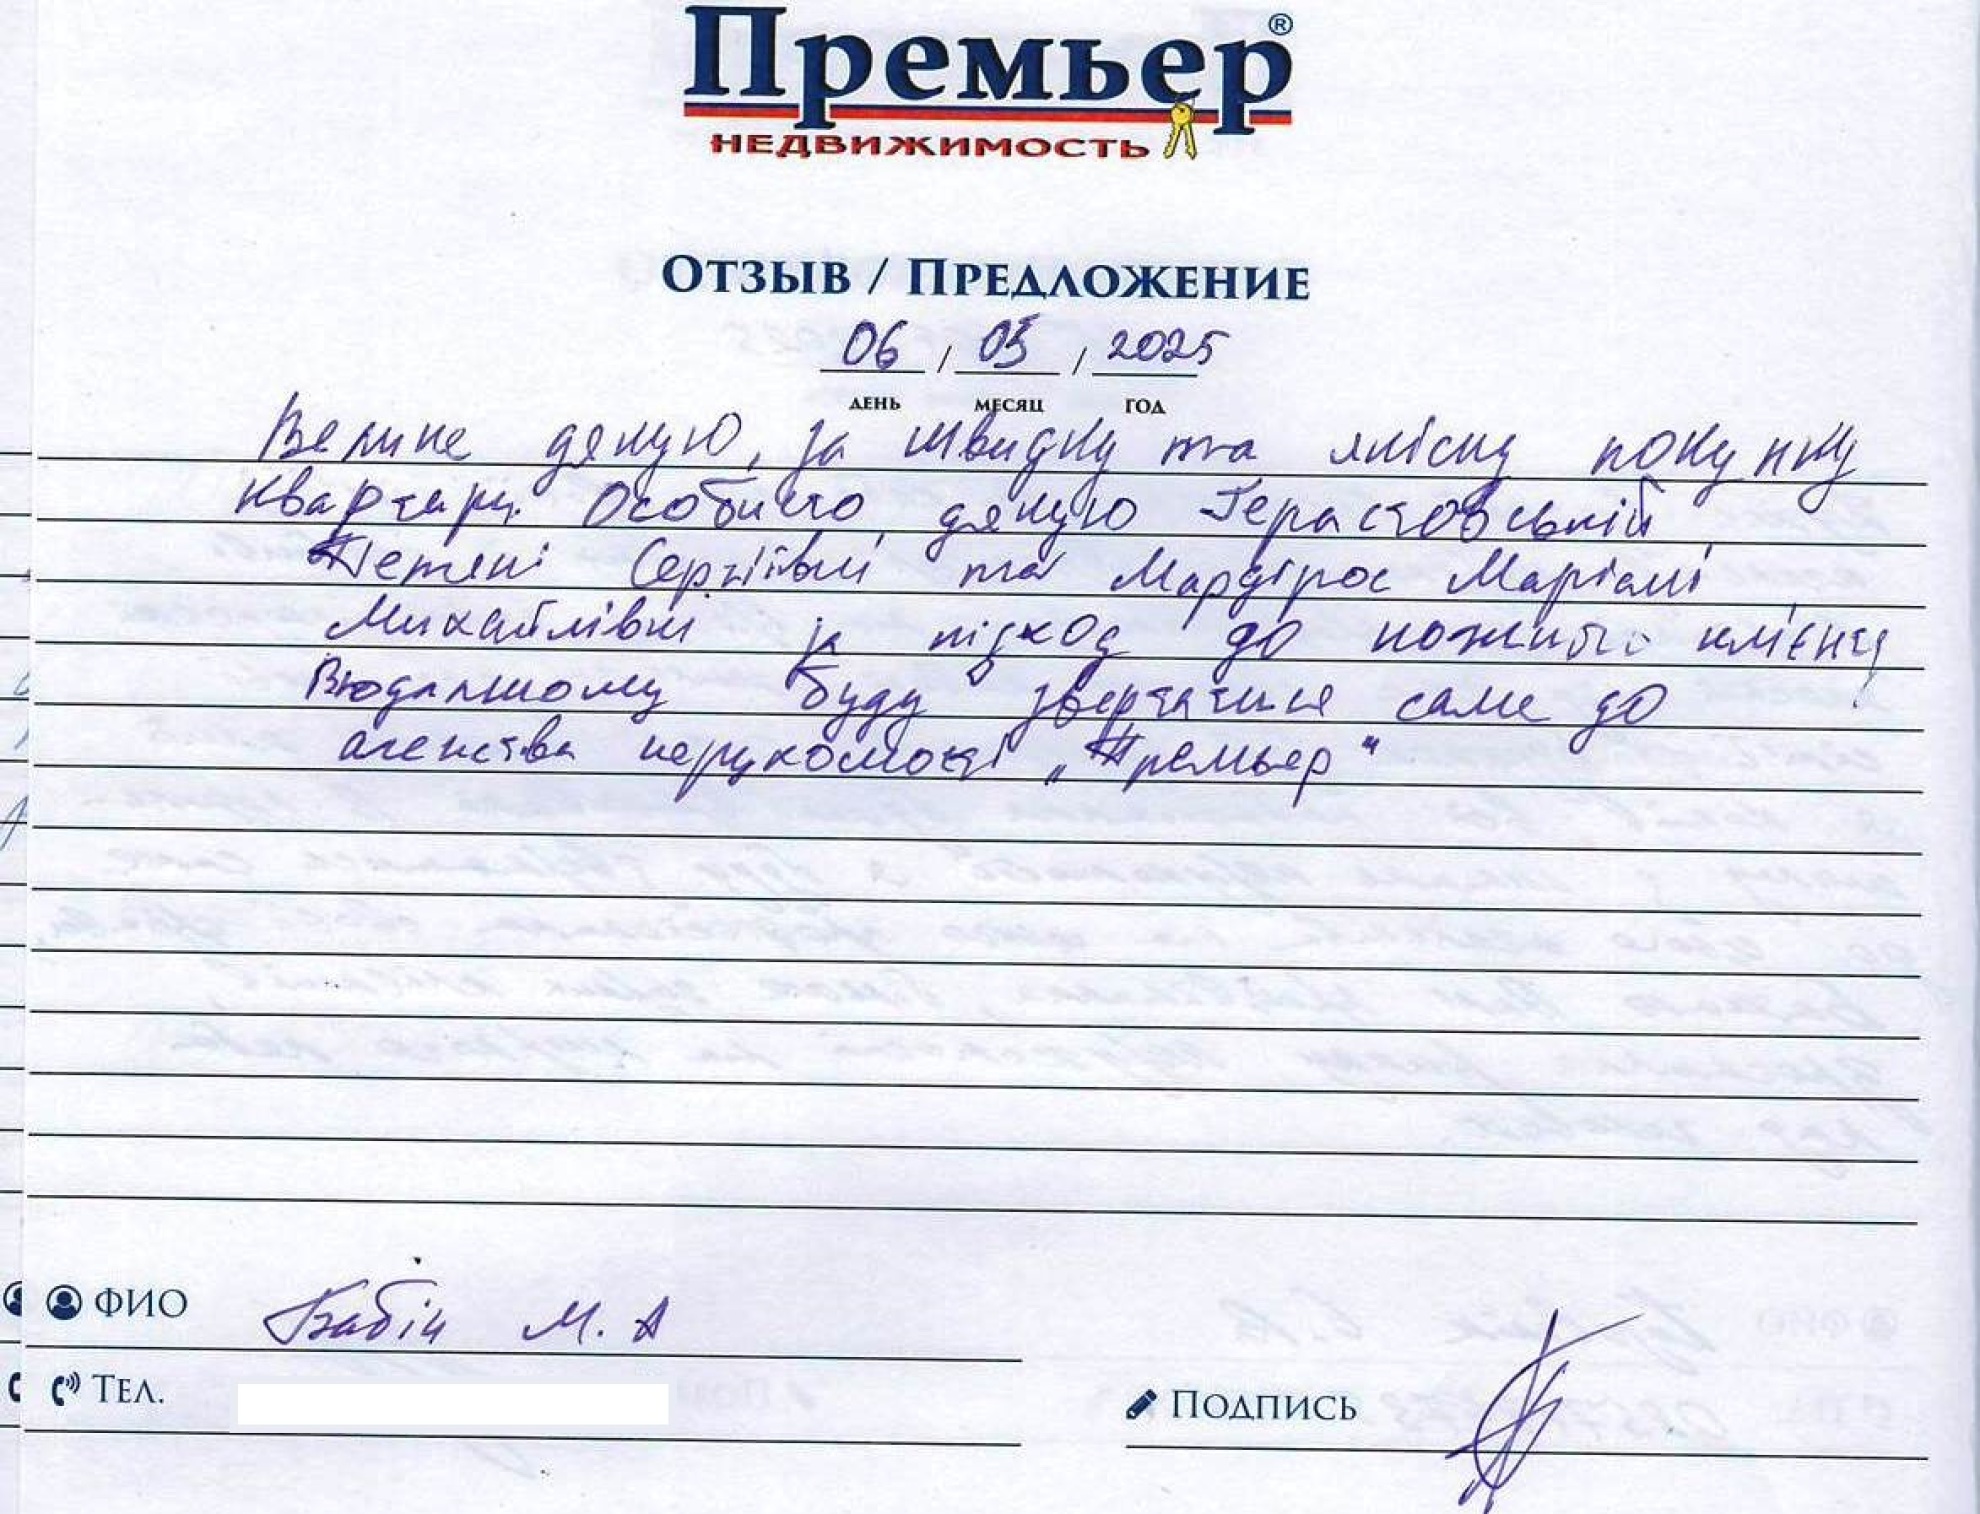 Премьер®
НЕДВИЖИМОСТЬ
ОТЗЫВ / ПРЕДЛОЖЕНИЕ
06 / 05 / 2025
ДЕНЬ МЕСЯЦ ГОД
Велике дякую, за швидку та якісну покупку
квартири. Особисто дякую Герастовській
Тетяні Сергіївні та Мардірос Маріамі
Михайлівні за підхід до кожного клієнту
Вподальшому буду звертатися саме до
агенства нерухомості „Премьер"
ФИО Бабін М. А
ТЕЛ.
ПОДПИСЬ